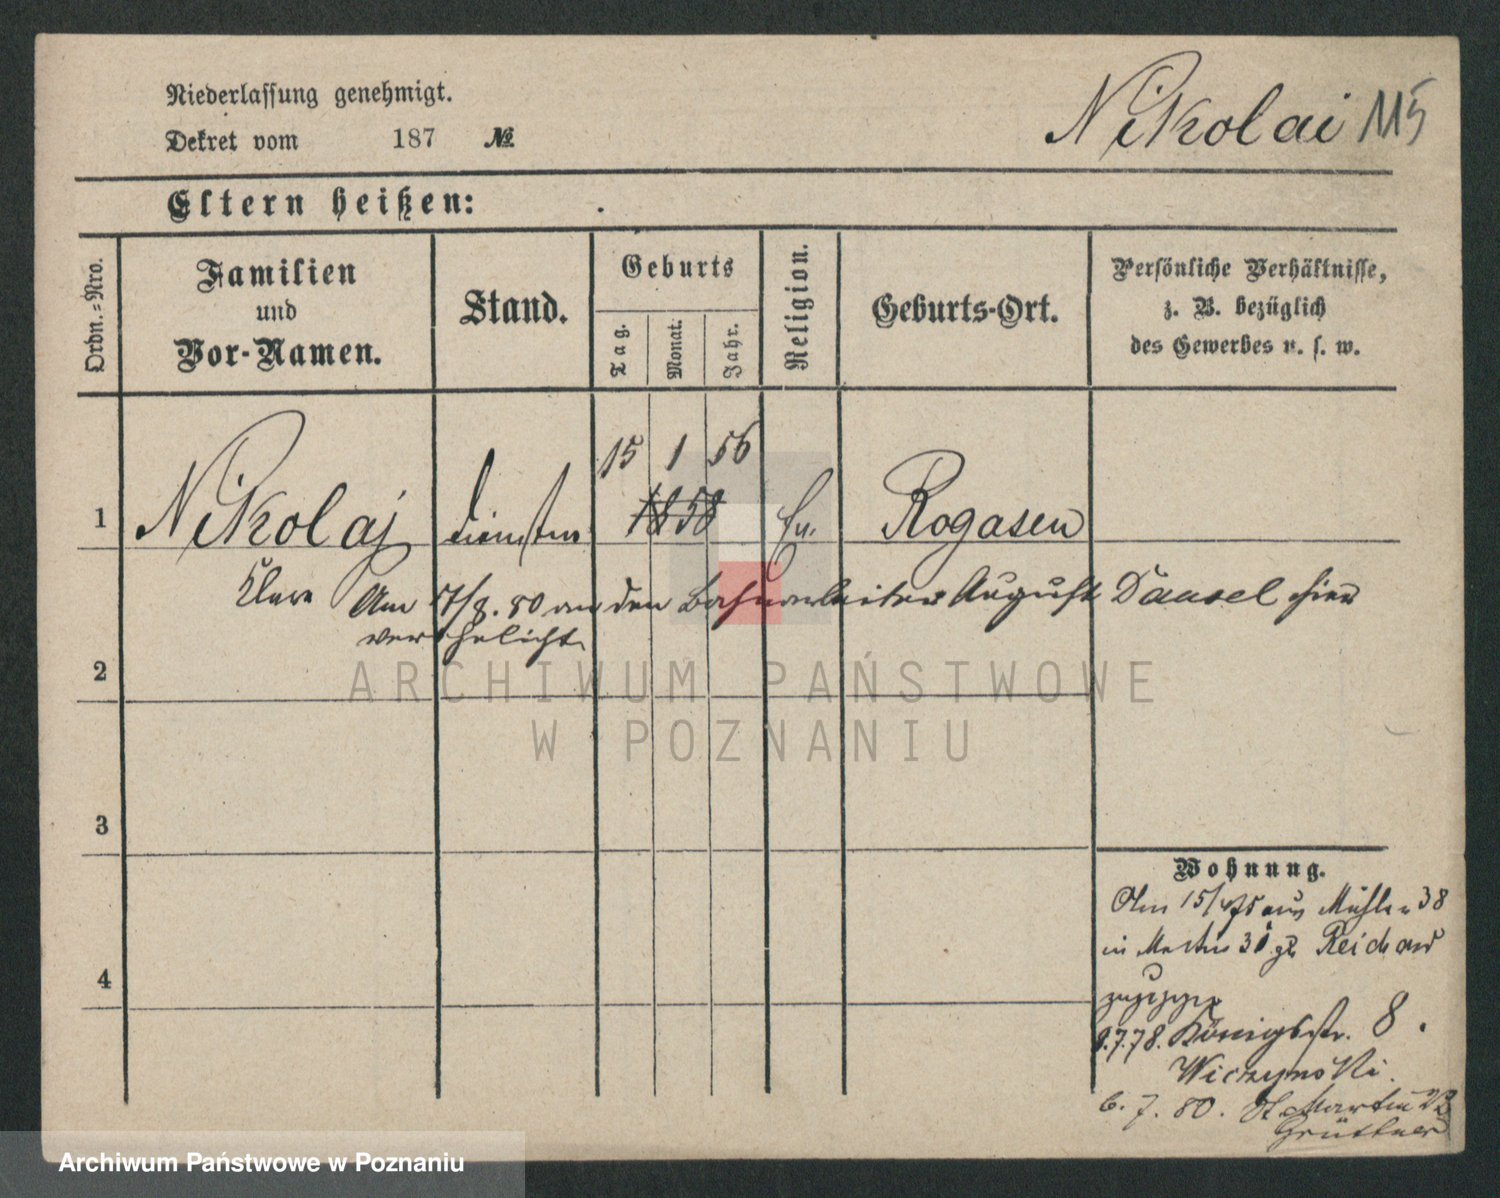 Niederlassung genehmigt.
Dekret vom 187 №
Nikolai 115
Eltern heißen:
Ordn.=Nro.
Familien
und
Vor-Namen.
Stand.
Geburts
Tag.
Monat.
Jahr.
Religion.
Geburts-Ort.
Persönliche Verhältnisse,
z. B. bezüglich
des Gewerbes u. s. w.
15 1 56
1 Nikolaj 1858 Ev. Rogasen
Clara Am 17/8. 80 an den Bahnarbeiter August Dausel hier
verehelicht
2
3
4
Wohnung.
Am 15/4 75 aus Mühlen 38
in Martin 31 Reichard
zugezogen
1.7.78. Königsstr. 8.
Wiczynski.
6. 7. 80. St. Martin
Grüttner
ARCHIWUM PAŃSTWOWE
W POZNANIU
Archiwum Państwowe w Poznaniu